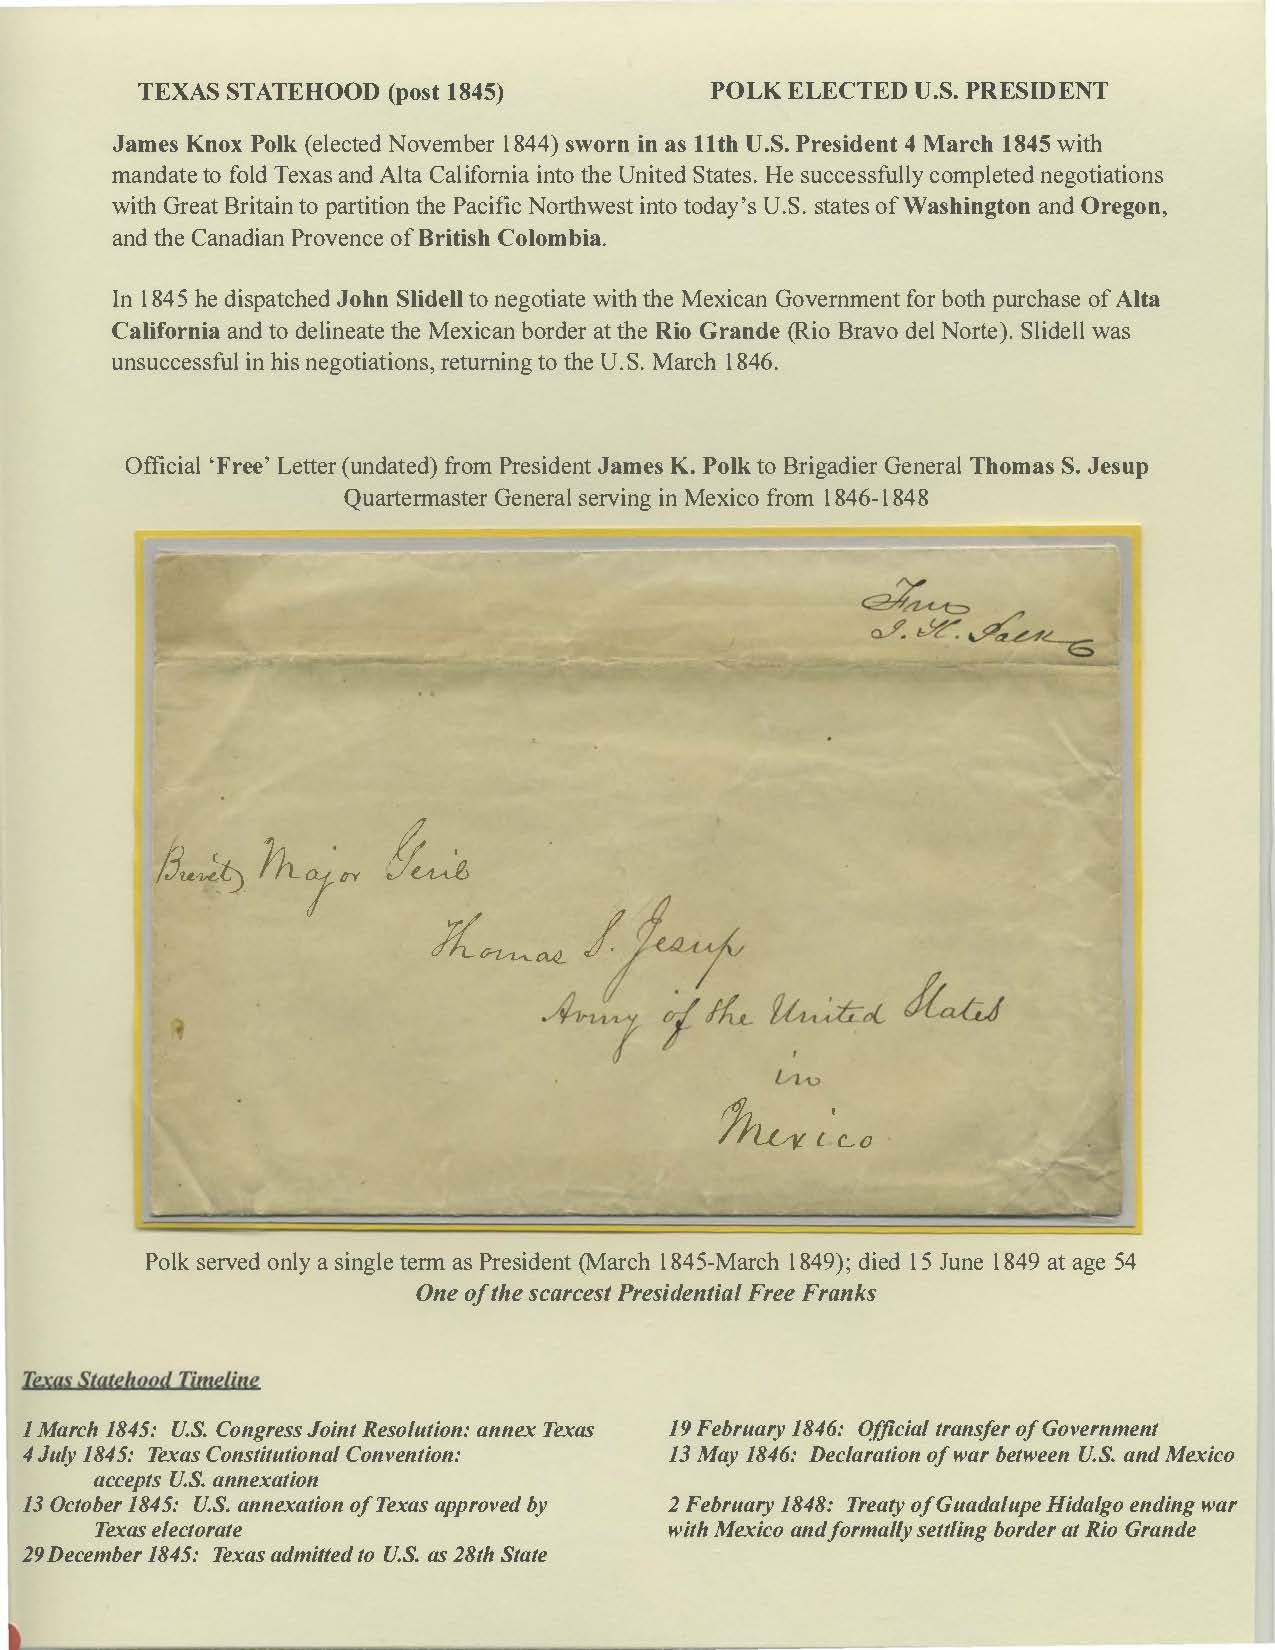 TEXAS STATEHOOD (post 1845) POLK ELECTED U.S. PRESIDENT
James Knox Polk (elected November 1844) sworn in as 11th U.S. President 4 March 1845 with
mandate to fold Texas and Alta California into the United States. He successfully completed negotiations
with Great Britain to partition the Pacific Northwest into today's U.S. states of Washington and Oregon,
and the Canadian Provence of British Colombia.
In 1845 he dispatched John Slidell to negotiate with the Mexican Government for both purchase of Alta
California and to delineate the Mexican border at the Rio Grande (Rio Bravo del Norte). Slidell was
unsuccessful in his negotiations, returning to the U.S. March 1846.
Official 'Free' Letter (undated) from President James K. Polk to Brigadier General Thomas S. Jesup
Quartermaster General serving in Mexico from 1846-1848
Free
J. K. Polk
Brevet Major Genl
Thomas S. Jesup
Army of the United States
in
Mexico
Polk served only a single term as President (March 1845-March 1849); died 15 June 1849 at age 54
One of the scarcest Presidential Free Franks
Texas Statehood Timeline
1 March 1845: U.S. Congress Joint Resolution: annex Texas
4 July 1845: Texas Constitutional Convention:
accepts U.S. annexation
13 October 1845: U.S. annexation of Texas approved by
Texas electorate
29 December 1845: Texas admitted to U.S. as 28th State
19 February 1846: Official transfer of Government
13 May 1846: Declaration of war between U.S. and Mexico
2 February 1848: Treaty of Guadalupe Hidalgo ending war
with Mexico and formally settling border at Rio Grande